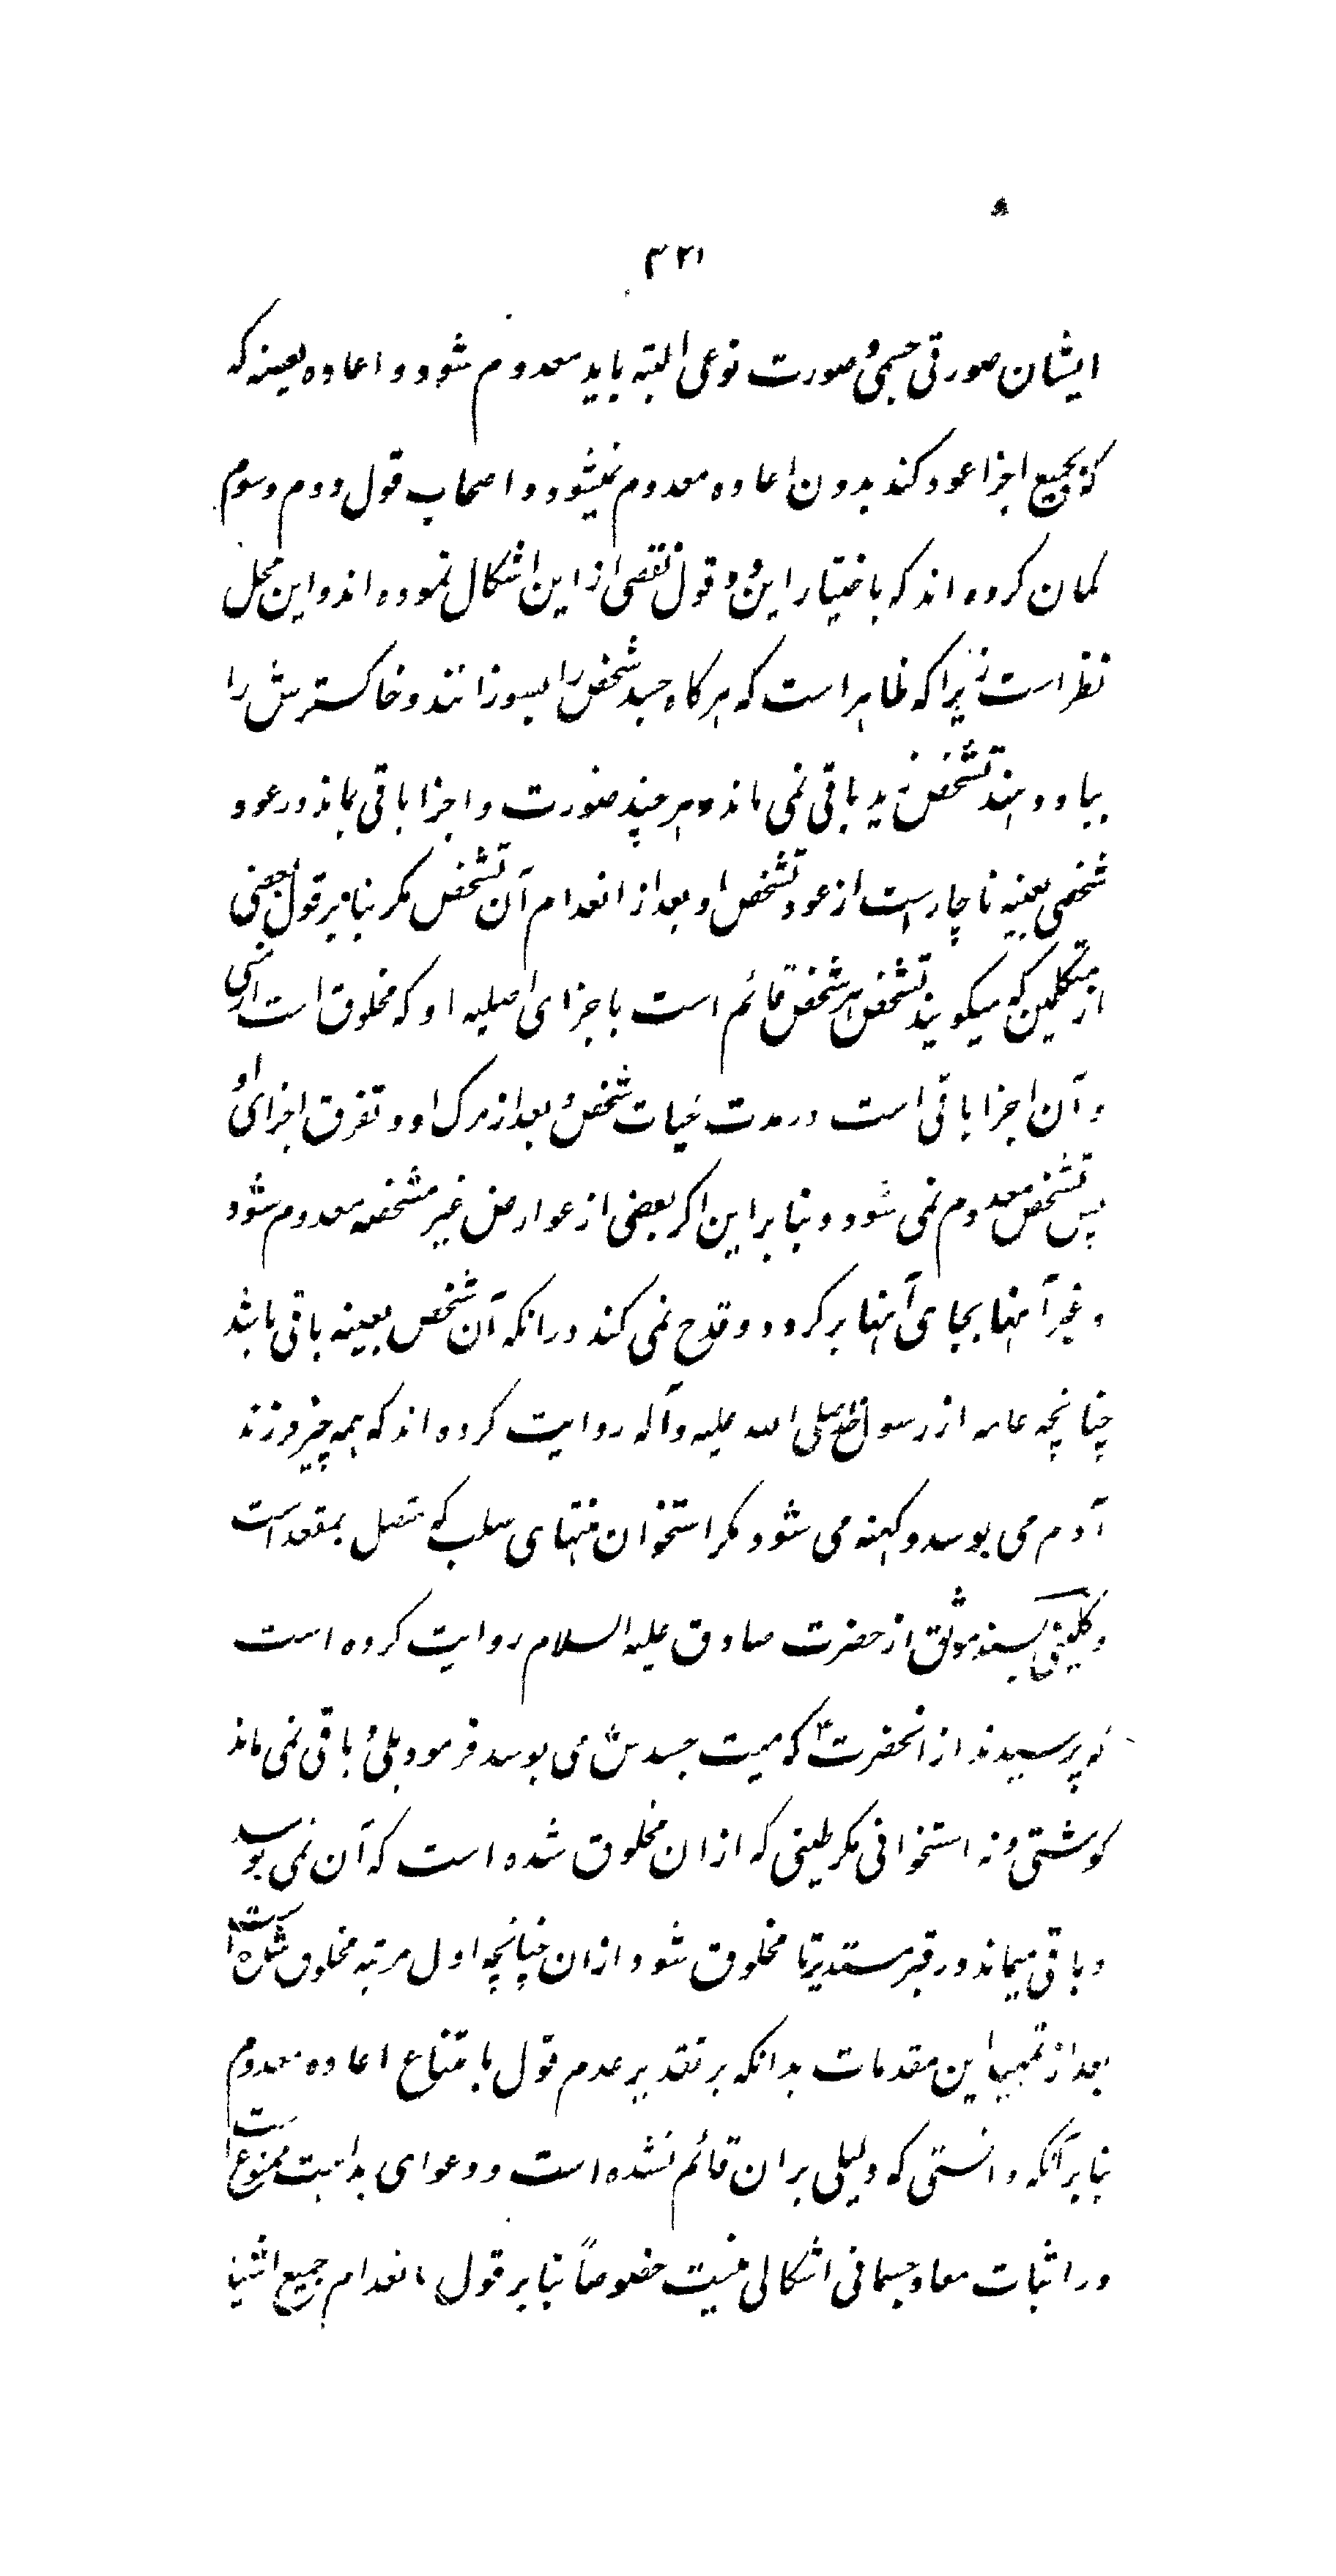 ۳۲۱
ایشان صورتی جسمی و صورت نوعی البته باید معدوم شود و اعاده بعینه که
که بجمیع اجزا عود کند بدون اعاده معدوم نمیشود و اصحاب قول دوم وسوم
کمان کرده اند که باختیار این دو قول تفصی از این اشکال نموده اند و این محل
نظر است زیرا که ظاهر است که هرکاه جسد شخص را بسوزانند و خاکسترش را
بباد دهند تشخص زید باقی نمی ماند و هر چند صورت و اجزا باقی بماند در عود
شخص بعینه ناچار است از عود تشخص او بعد از انعدام آن تشخص مکر بنا بر قول بعضی
از متکلمین که میکویند تشخص هر شخص قائم است باجزای اصلیه او که مخلوق است از منی
و آن اجزا باقی است در مدت حیات شخص و بعد از مرک او و تفرق اجزای او
پس تشخص معدوم نمی شود و بنا بر این اکر بعضی از عوارض غیر مشخصه معدوم شود
و غیر آنها بجای آنها بر کردد و قدح نمی کند در انکه آن شخص بعینه باقی باشد
چنانچه عامه از رسول خدا صلی الله علیه وآله روایت کرده اند که همه چیز فرزند
آدم می بوسد و کهنه می شود مکر استخوان منتهای صلب که متصل بمقعد است
و کلینی بسند موثق از حضرت صادق علیه السلام روایت کرده است
که پرسیدند از انحضرت ع که میت جسدش می بوسد فرمود بلی و باقی نمی ماند
کوشتی و نه استخوانی مکر طینی که ازان مخلوق شده است که آن نمی بوسد
و باقی میماند در قبر مستدیر تا مخلوق شود ازان چنانچه اول مرتبه مخلوق شده است
بعد از تمهید این مقدمات بدانکه بر تقدیر عدم قول بامتناع اعاده معدوم
بنا بر آنکه دانستی که دلیلی بران قائم نشده است و دعوای بداهت ممنوع است
در اثبات معاد جسمانی اشکالی نیست خصوصاً بنا بر قول بانعدام جمیع اشیا